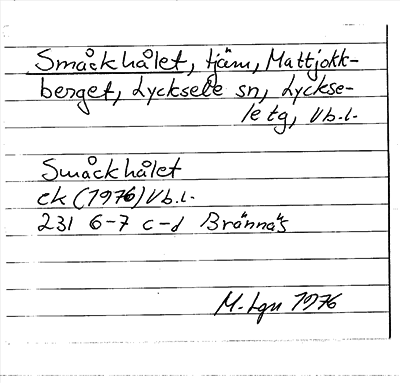 Småckhålet, tjärn, Mattjokk-
berget, Lycksele sn, Lyckse-
le tg, Vb.l.
Småckhålet
ek (1976) Vb.l.
231 6-7 c-d Brännäs
M. Lgn 1976